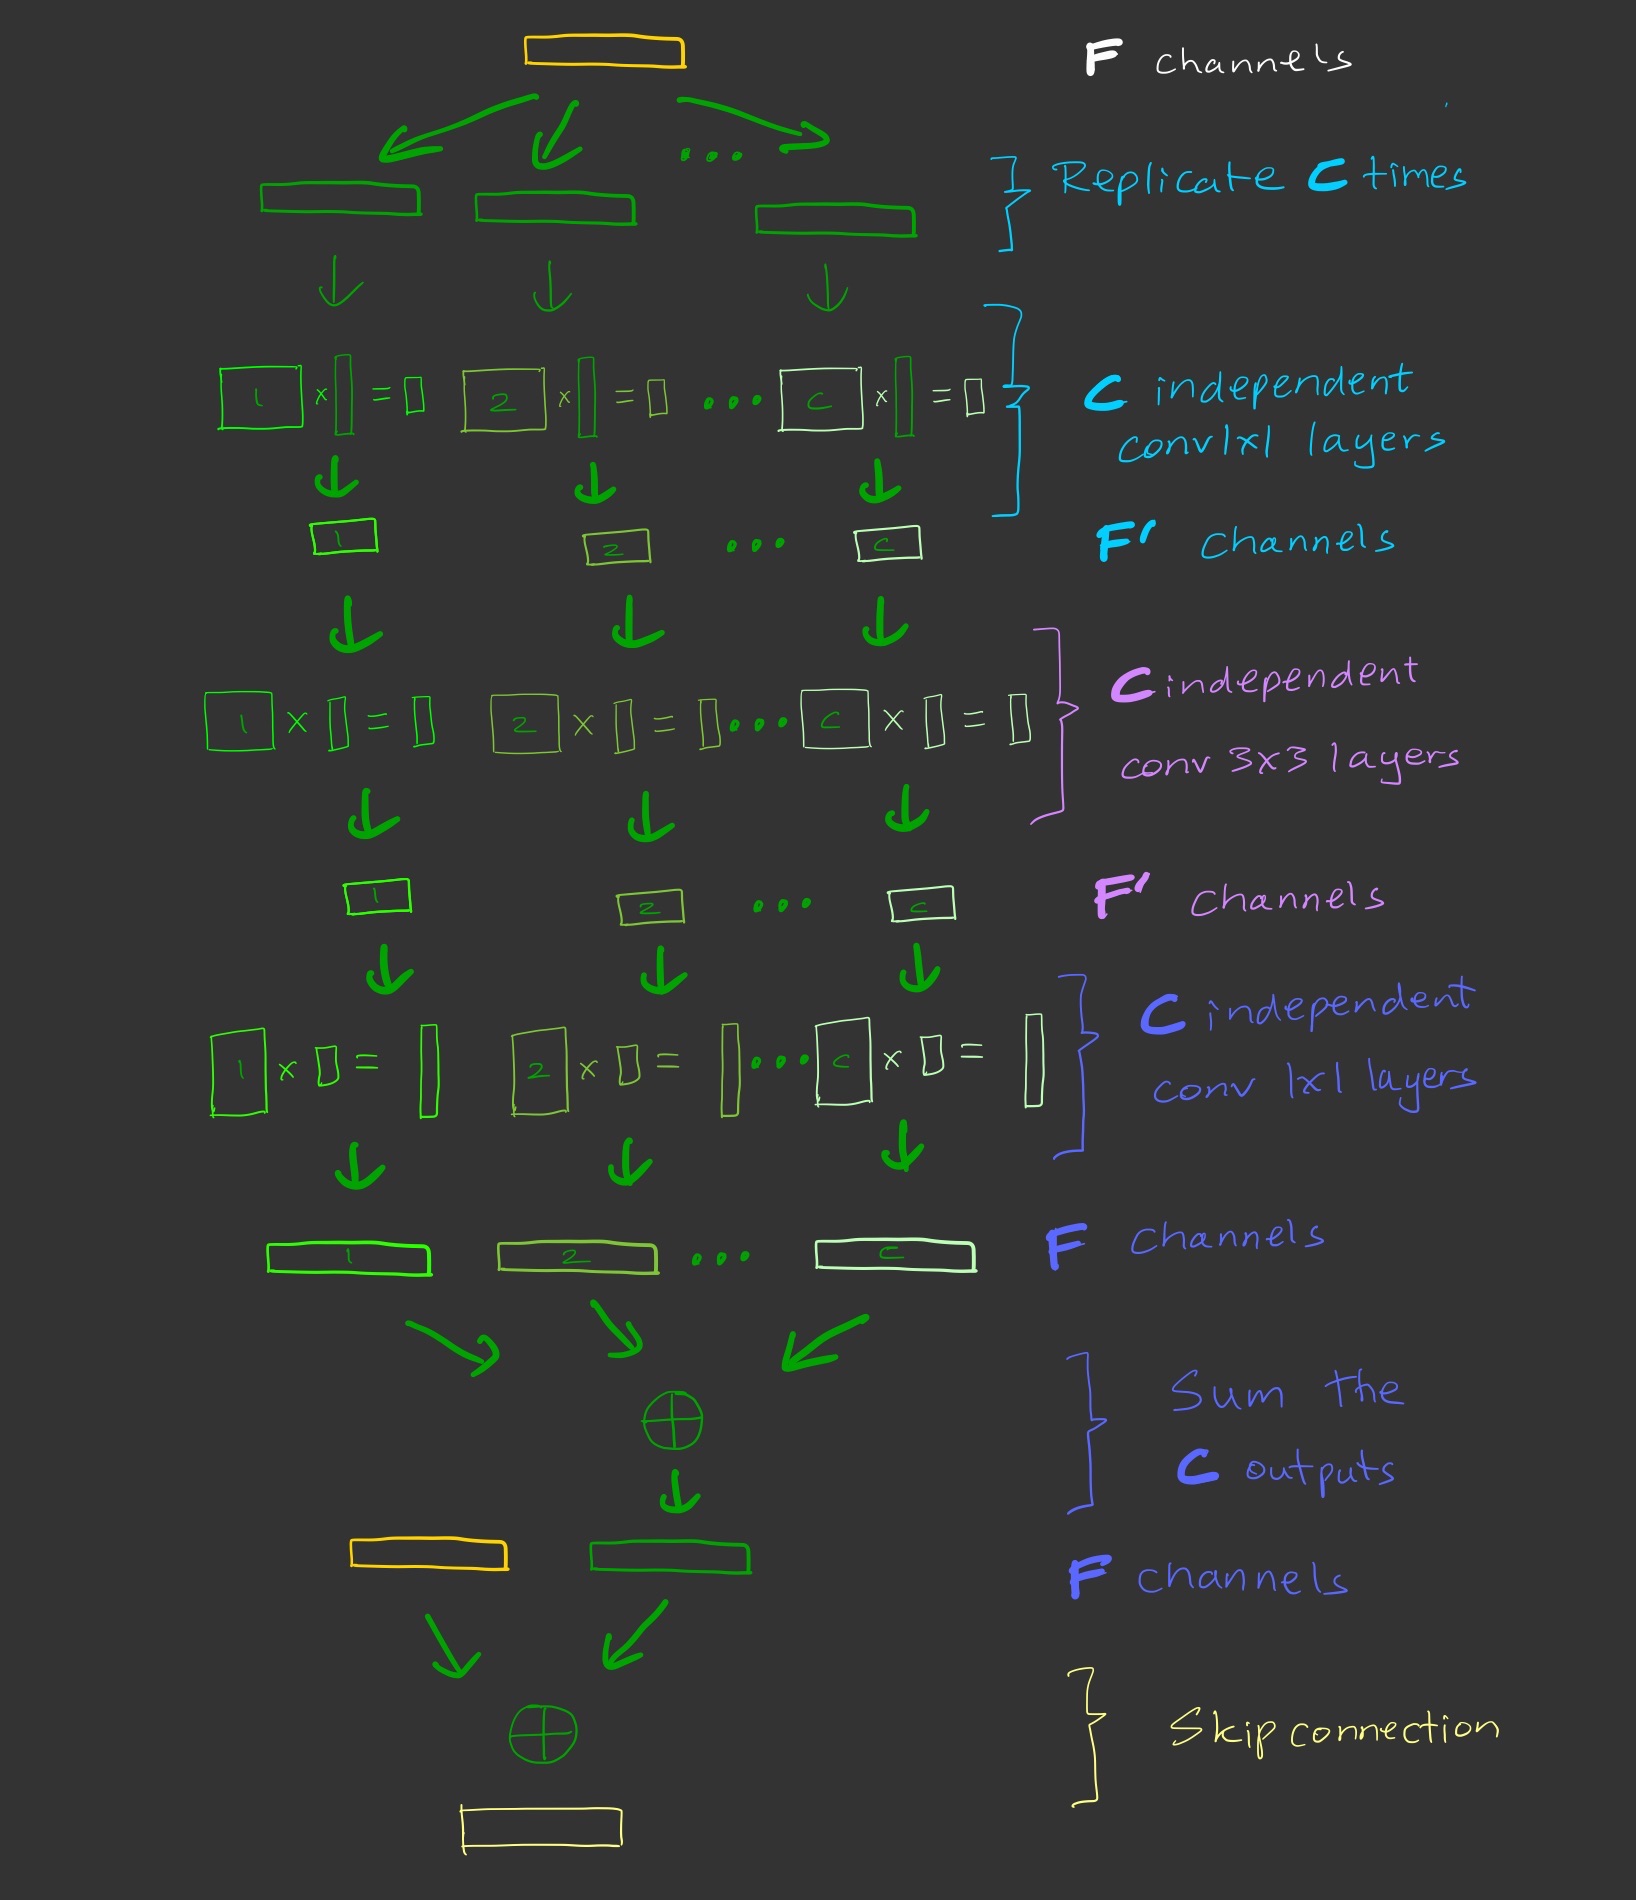 F channels
Replicate C times
1 x = 2 x = ... C x =
C independent
conv 1x1 layers
1 2 ... C
F' channels
C independent
1 x = 2 x = ... C x =
conv 3x3 layers
1 2 ... C
F' channels
C independent
1 x = 2 x = ... C x =
conv 1x1 layers
1 2 ... C
F channels
Sum the
C outputs
F channels
Skip connection